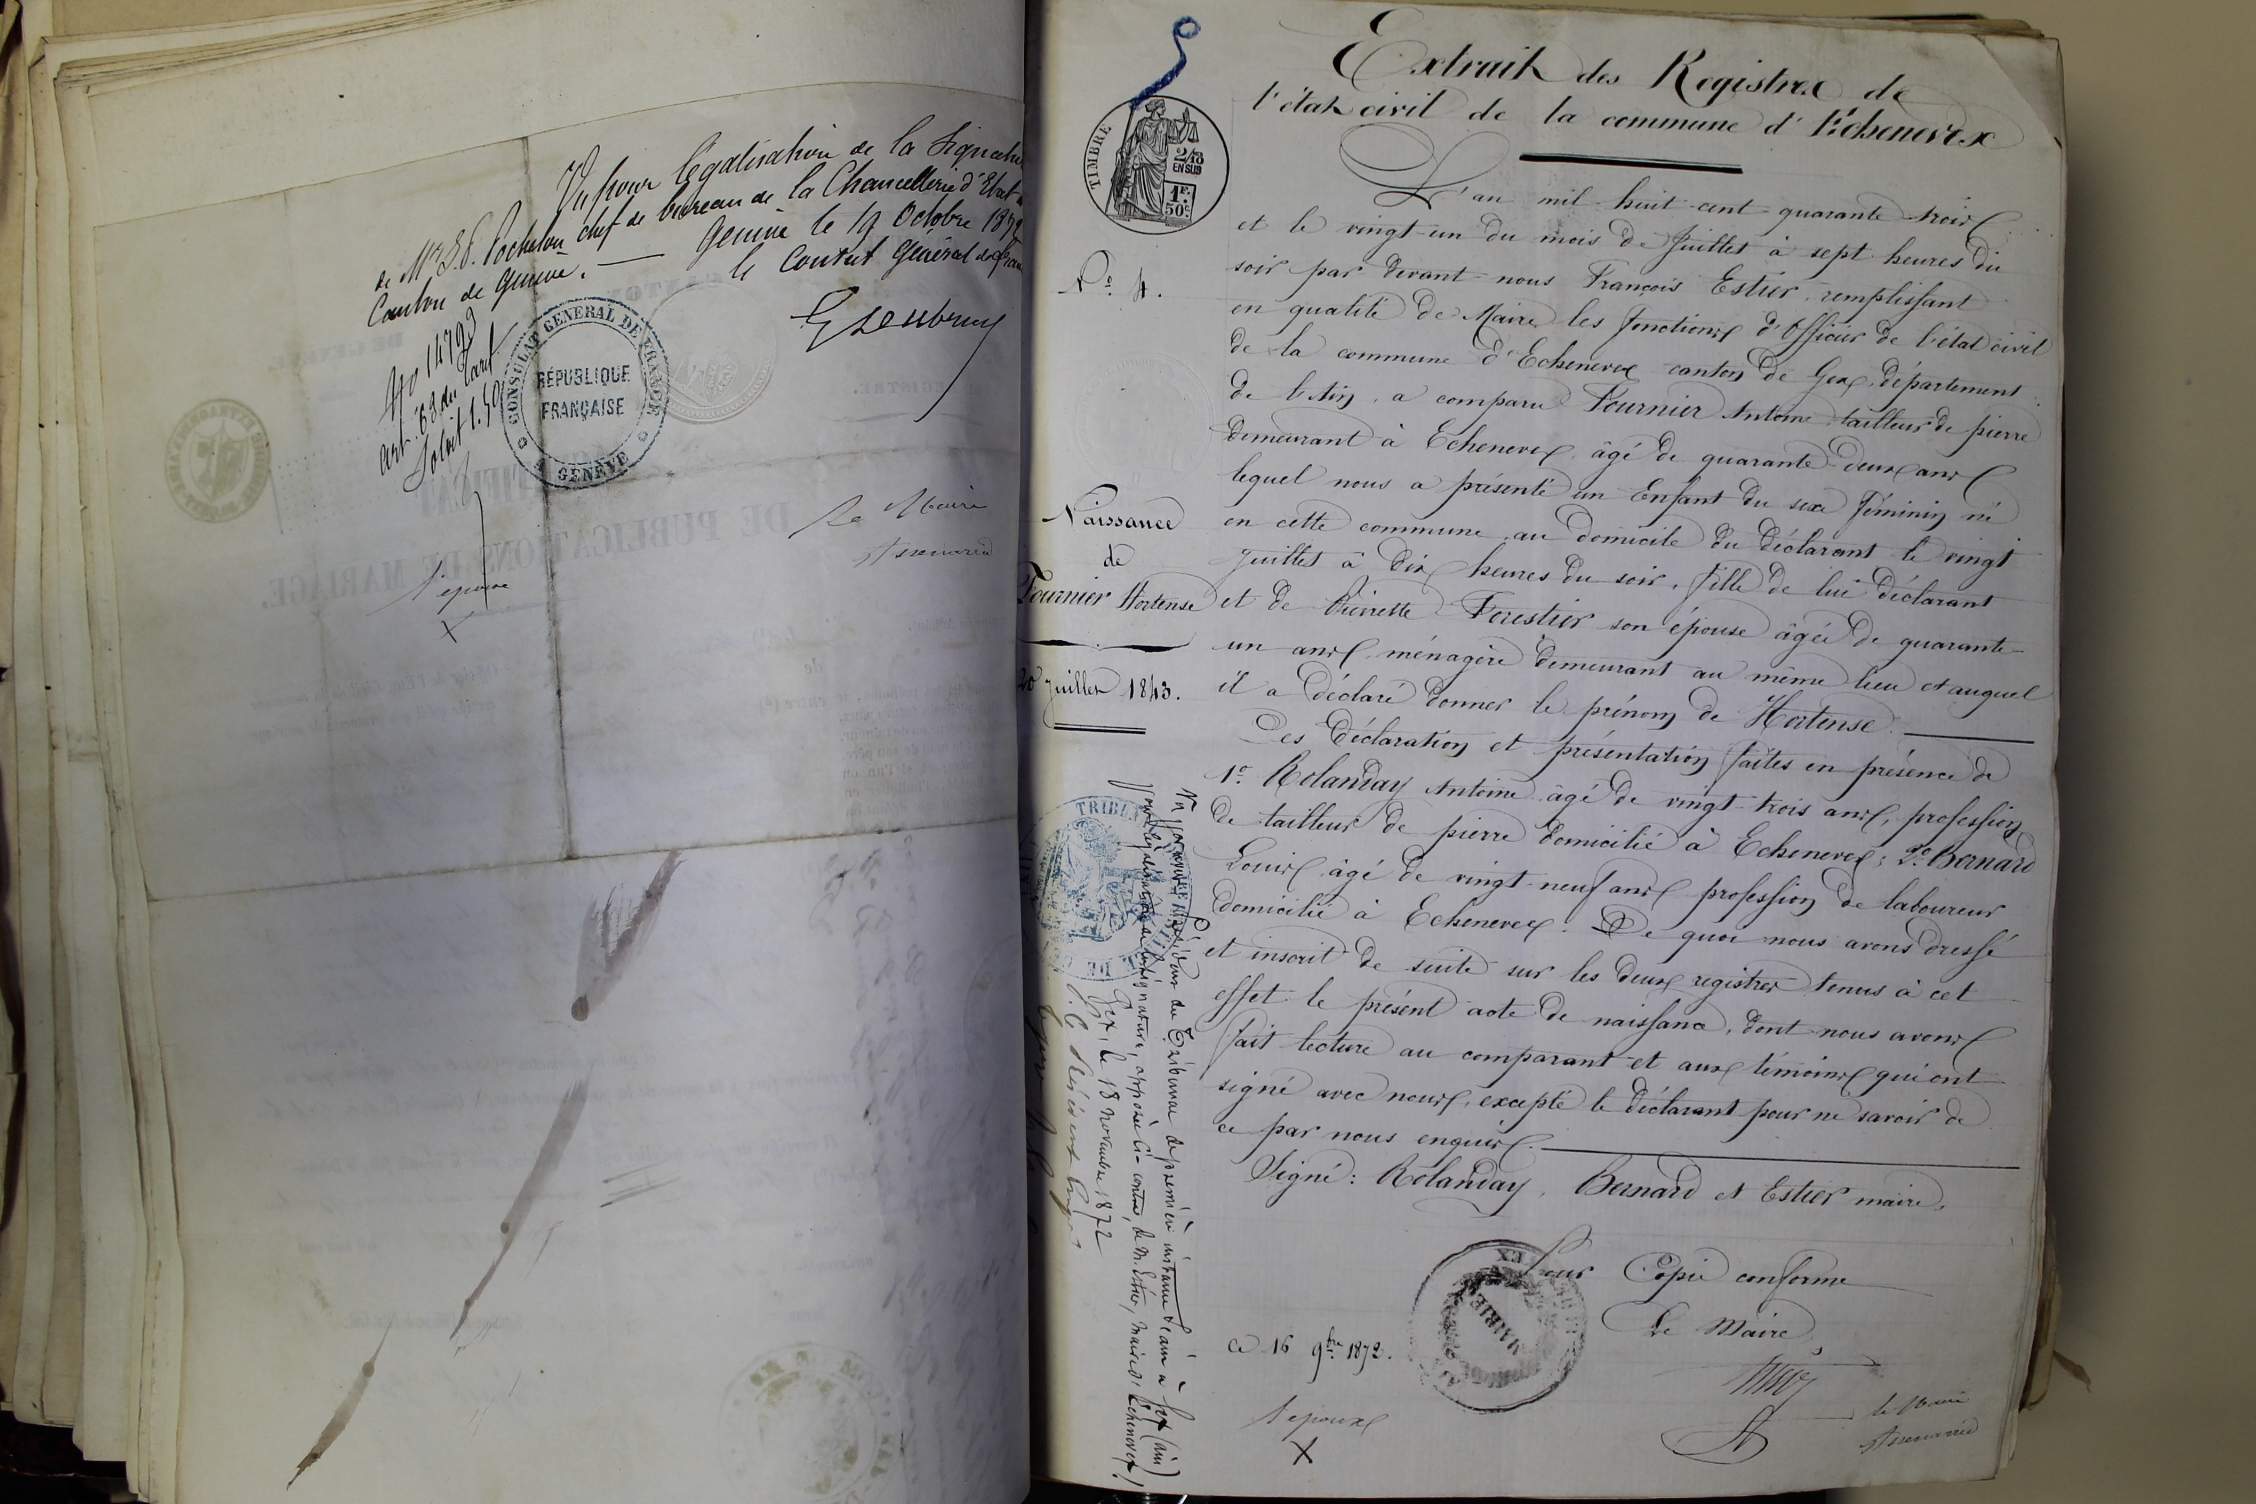 Vu pour légalisation de la signature
de Mr J. E. Pochelon chef de bureau de la Chancellerie d'Etat
Canton de Genève. — Genève le 19 Octobre 1872
le Consul Général de France
No 1479
art. 68 du Tarif
Soloit 1.50
CONSULAT GENERAL DE FRANCE
RÉPUBLIQUE
FRANÇAISE
A GENÈVE
Le Maire
l'épouse
X
DE PUBLICATIONS DE MARIAGE.
Extrait des Registres de
l'état civil de la commune d'Echenevex
TIMBRE
2/10
EN SUS
1F.
50c
L'an mil huit cent quarante trois
et le vingt-un du mois de Juillet à sept heures du
soir par devant nous François Estier, remplissant
en qualité de Maire les fonctions d'Officier de l'état civil
de la commune d'Echenevex canton de Gex, département
de l'Ain, a comparu Fournier Antoine tailleur de pierre
demeurant à Echenevex, âgé de quarante-deux ans
lequel nous a présenté un Enfant du sexe féminin né
en cette commune, au domicile du déclarant le vingt
juillet à dix heures du soir, fille de lui déclarant
et de Pierrette Forestier son épouse âgée de quarante-
un ans, ménagère demeurant au même lieu et auquel
il a déclaré donner le prénom de Hortense.
Les déclaration et présentation faites en présence de
1o. Rolanday Antoine âgé de vingt-trois ans, profession
de tailleur de pierre domicilié à Echenevex; 2o. Bernard
Louis âgé de vingt-neuf ans profession de laboureur
domicilié à Echenevex. De quoi nous avons dressé
et inscrit de suite sur les deux registres tenus à cet
effet le présent acte de naissance, dont nous avons
fait lecture au comparant et aux témoins qui ont
signé avec nous, excepté le déclarant pour ne savoir de
ce par nous enquis.
Signé: Rolanday, Bernard et Estier maire.
Pour Copie conforme
Le Maire
ce 16 9bre 1872.
MAIRIE
l'épouse
X
le Maire
No. 4.
Naissance
de
Fournier Hortense
20 juillet 1843.
Vu par nous Président du Tribunal de première instance séant à Gex (Ain)
pour légalisation de la signature, apposée ci-contre, de M. Estier, maire d'Echenevex,
Gex, le 18 novembre 1872